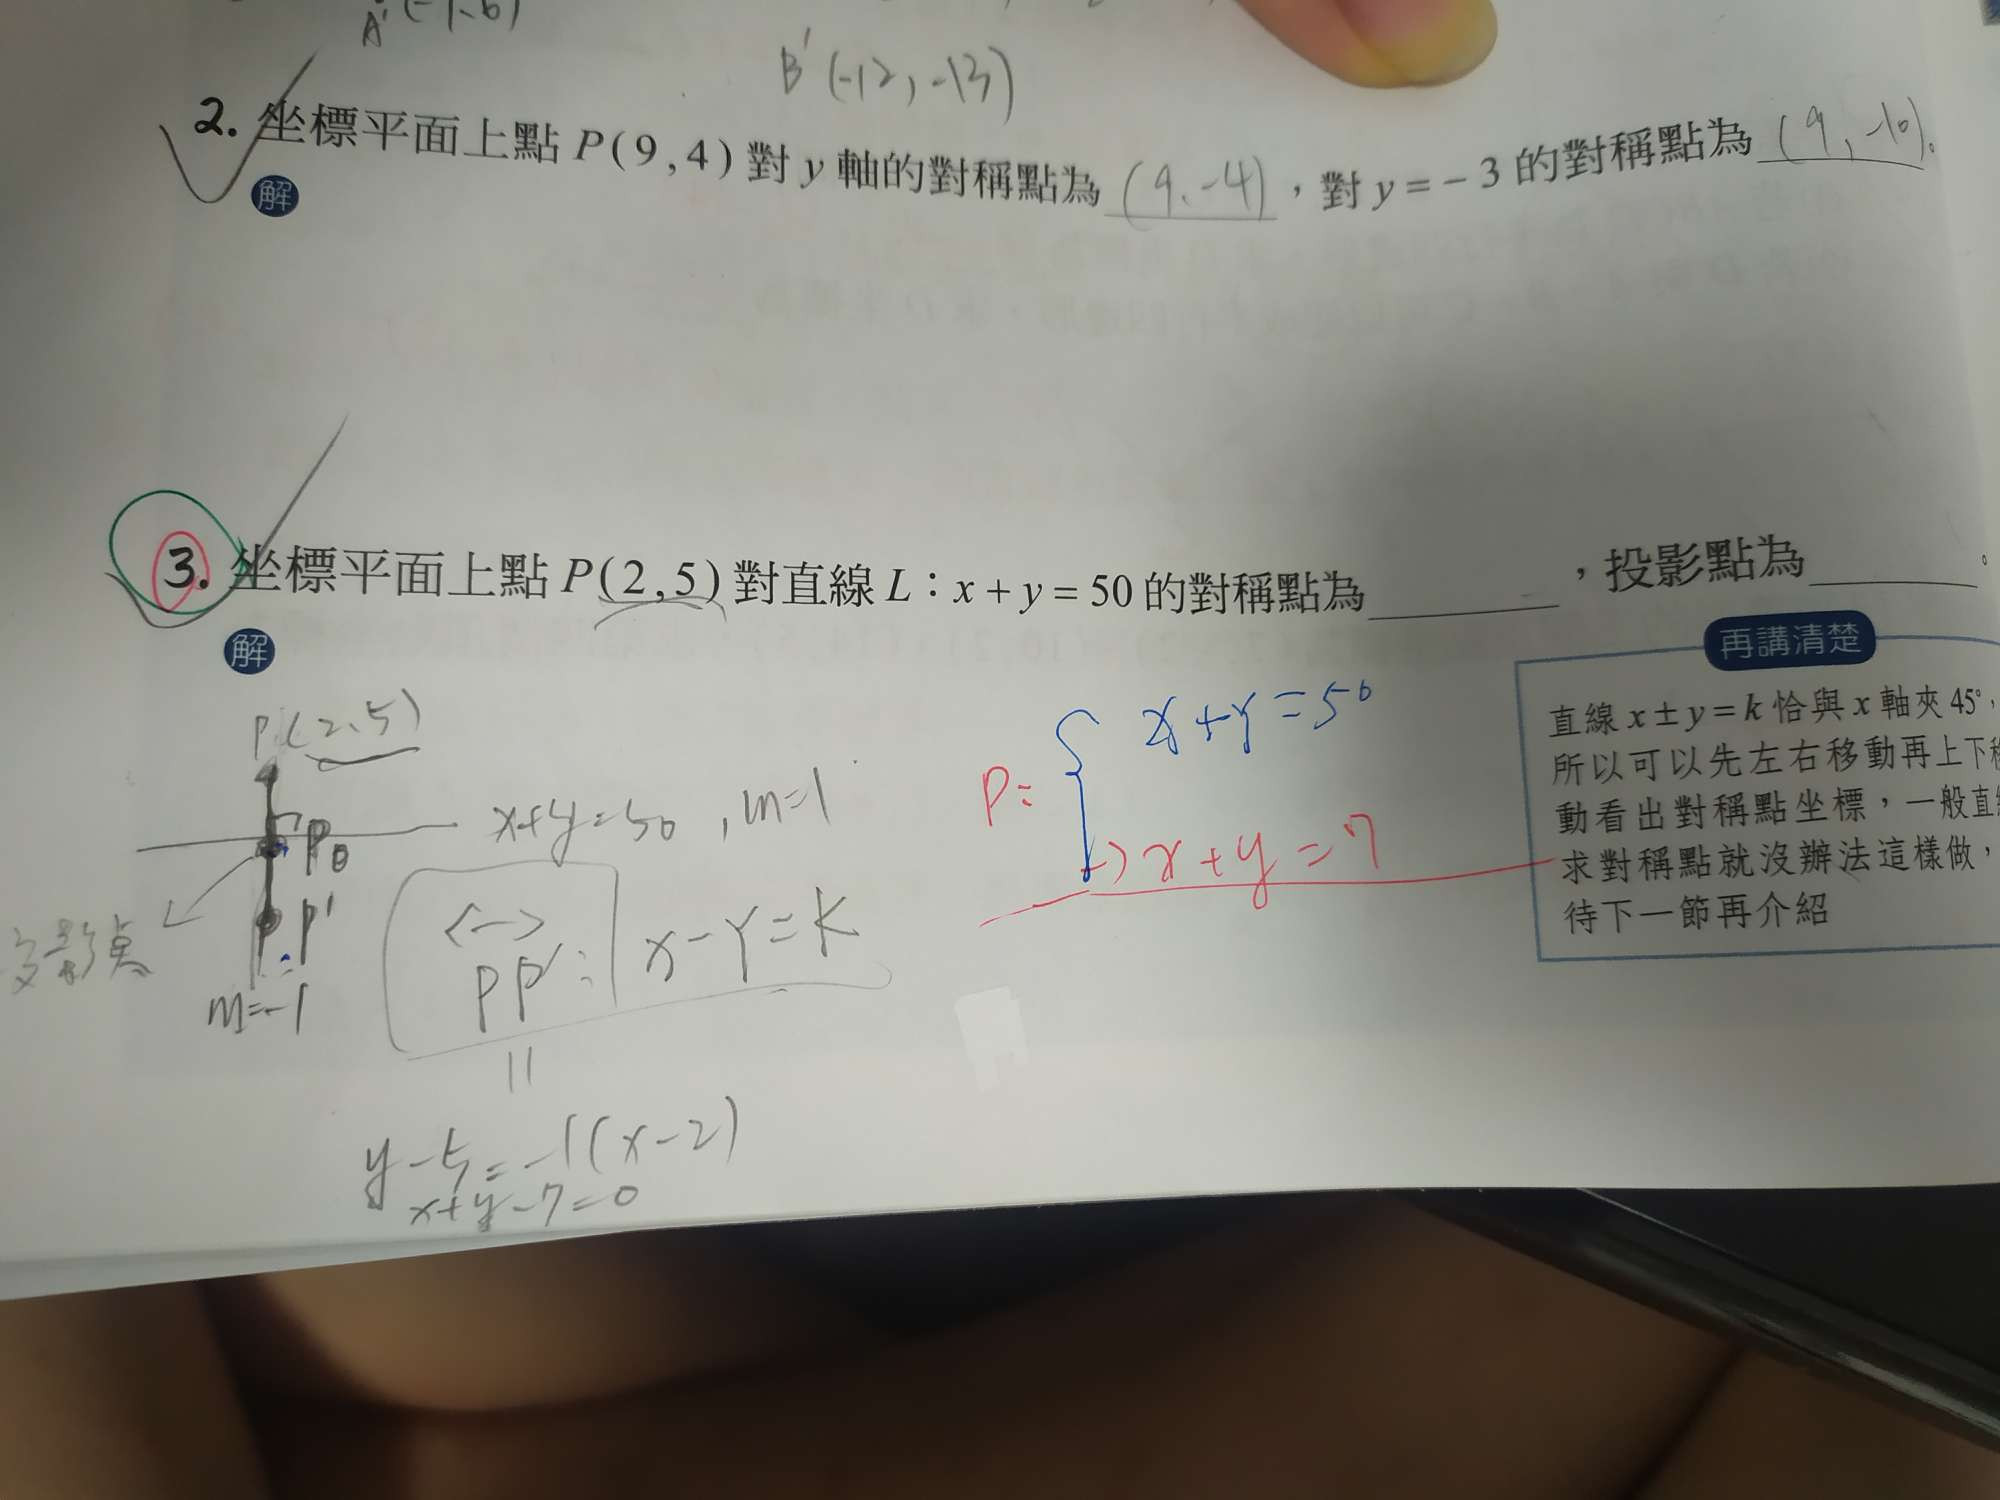 A'(-1,6)
B'(-12,-13)
2. 坐標平面上點 P(9,4) 對 y 軸的對稱點為 (9,-4) ，對 y = -3 的對稱點為 (9,-10)。
解
3. 坐標平面上點 P(2,5) 對直線 L：x + y = 50 的對稱點為 ，投影點為 。
解
再講清楚
直線 x ± y = k 恰與 x 軸夾 45°，
所以可以先左右移動再上下移
動看出對稱點坐標，一般直線
求對稱點就沒辦法這樣做，
待下一節再介紹
P(2,5)
x+y=50 , m=1
P0
P'
m=-1
PP': x-y=k
y-5=-1(x-2)
x+y-7=0
P: x+y=50
x+y=7